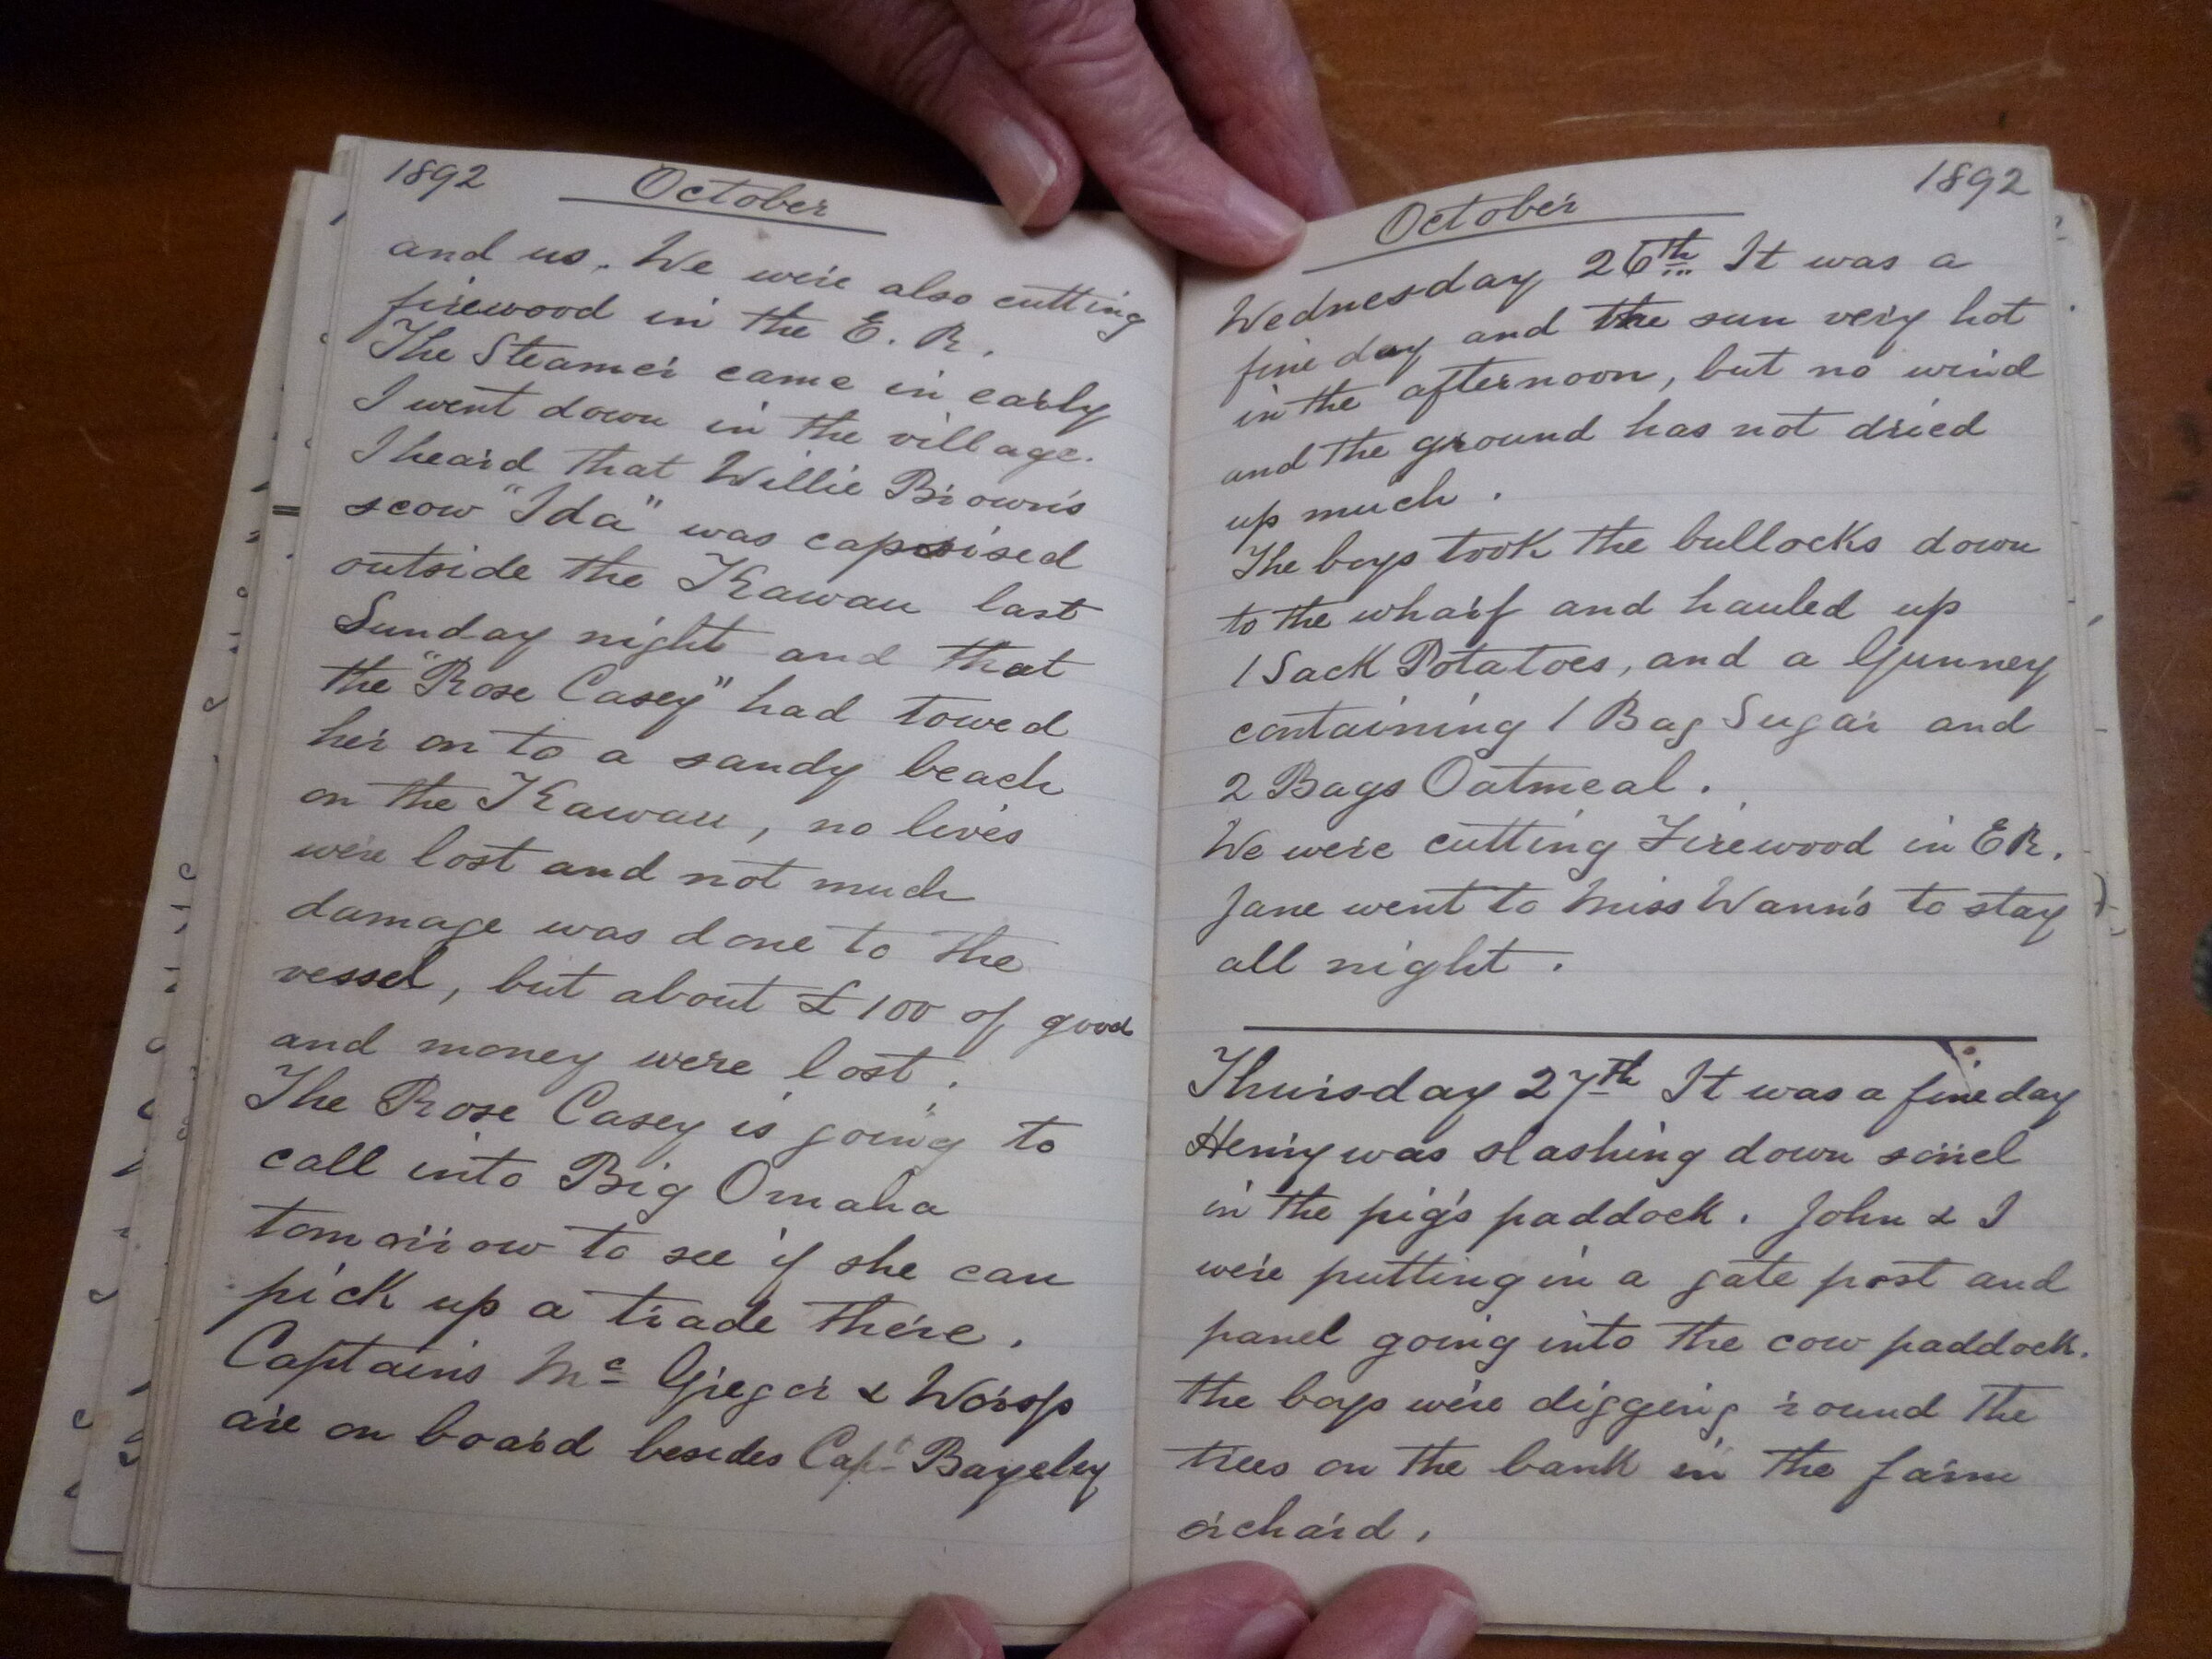 1892 October
and us. We were also cutting
firewood in the E. R.
The Steamer came in early
I went down in the village.
I heard that Willie Brown's
scow "Ida" was capsised
outside the Kawau last
Sunday night and that
the "Rose Casey" had towed
her on to a sandy beach
on the Kawau, no lives
were lost and not much
damage was done to the
vessel, but about £100 of good
and money were lost.
The Rose Casey is going to
call into Big Omaha
tomorrow to see if she can
pick up a trade there.
Captains Mc Gregor & Worsp
are on board besides Capt Bayeley
October 1892
Wednesday 26th It was a
fine day and the sun very hot
in the afternoon, but no wind
and the ground has not dried
up much.
The boys took the bullocks down
to the wharf and hauled up
1 Sack Potatoes, and a Gunney
containing 1 Bag Sugar and
2 Bags Oatmeal.
We were cutting Firewood in ER.
Jane went to Miss Wann's to stay
all night.
Thursday 27th It was a fine day
Henry was slashing down
in the pig's paddock. John & I
were putting in a gate post and
panel going into the cow paddock.
the boys were digging round the
trees on the bank in the farm
orchard.